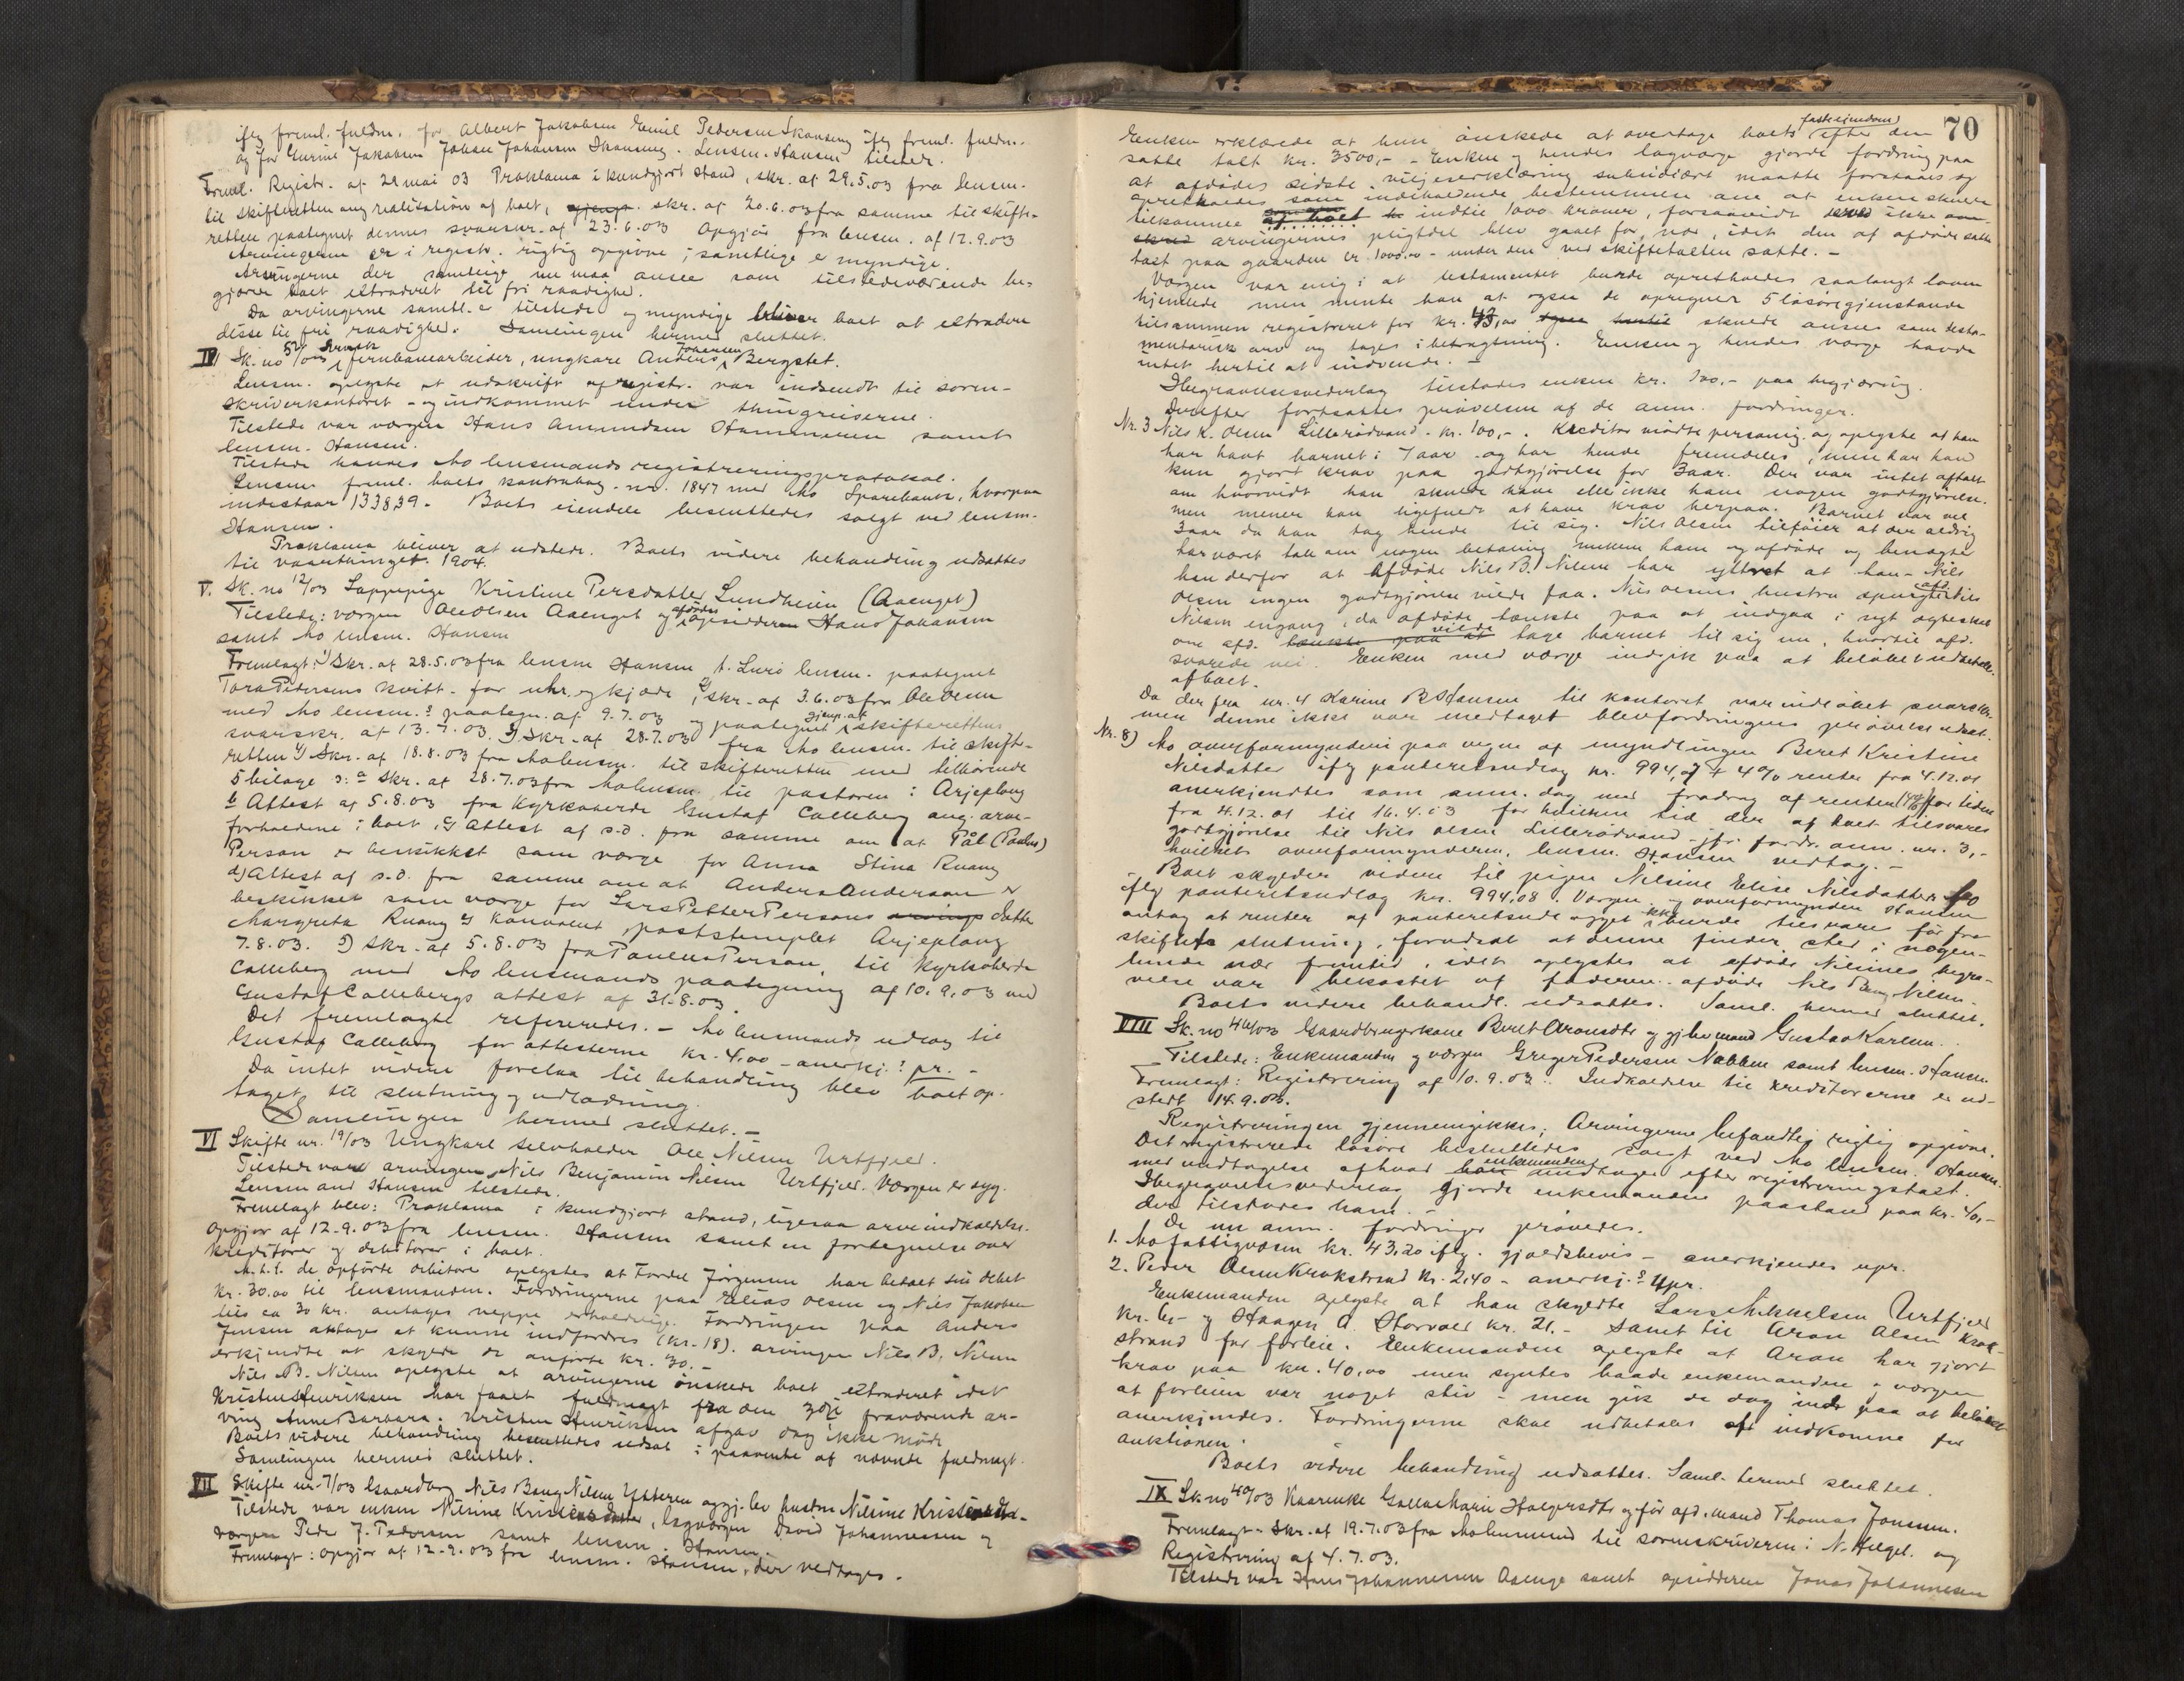 ifg freml. fuldm. for Albert Jakobsen Emil Pedersen Skonseng ifg freml. fuldm.
og for Gurine Jakobsen Johan Johansen Skonseng. Lensm. Hansen tilstede.
Freml. Registr. af 29 mai 03 Proklama i kundgjort stand, skr. af 29.5.03 fra lensm.
til skifteretten ang realisation af boet, skr. af 20.6.03 fra samme til skifte-
retten paategnet dennes svarskr. af 23.6.03 Opgjør fra lensm. af 12.9.03
Arvingerne er i registr. rigtig opgivne; samtlige er myndige.
Arvingerne der samtlige nu maa ansees som tilstedeværende be-
gjærer boet extraderet til fri raadighed.
Da arvingerne samtl. er tilstede og myndige bliver boet at extradere
disse til fri raadighed. Samlingen hermed sluttet.
IV Sk. no 52/03 Svensk jernbanearbeider, ungkarl Anders Johansen Bergstet.
Lensm. oplyste at udskrift af registr. var indsendt til soren-
skriverkontoret - og indkommet under thingreiserne.
Tilstede var værgen Hans Amundsen Hammeren samt
lensm. Hansen.
Tilstede havdes Mo lensmands registreringsprotokol.
Lensm freml. boets kontrabog nr. 1847 med Mo Sparebank, hvorpaa
indestaar 1338,39. Boets eiendele besluttedes solgt ved lensm.
Hansen.
Proklama bliver at udstede. Boets videre behandling udsattes
til vaarthinget 1904.
V. Sk. no 12/03 Lappepige Kristine Persdatter Lundheim (Aaenget)
Tilstede: værgen Ole Olsen Aaenget og afdødes opsidderen Hans Johansen
samt Mo lensm. Hansen
Fremlagt: 1) Skr. af 28.5.03 fra lensm Hansen t. Lurø lensm. paategnet
Tora Pedersens kvitt. for uhr og kjæde, 2) skr. af 3.6.03 fra Ole Olsen
med Mo lensm.s paategn. af 9.7.03 og paategnet gjenp. af skifterettens
svarskr. af 13.7.03. 3) Skr. af 28.7.03 fra Mo lensm. til skifte-
retten 4) Skr. af 18.8.03 fra Mo lensm. til skifteretten med tilhørende
5 bilage s: a Skr. af 28.7.03 fra Mo lensm. til pastoren i Arjeplong
b Attest af 5.8.03 fra Kyrkoherde Gustaf Calleberg ang. arve-
forholdene i boet, c) Attest af s.d. fra samme om at Pål (Paulus)
Person er beskikket som værge for Anna Stina Ruong
d) Attest af s.d. fra samme om at Anders Andersson er
beskikket som værge for Lars Petter Persons arvings datter
Margreta Ruong e) Konvolut, poststemplet Arjeplong
7.8.03. 5) Skr. af 5.8.03 fra Paulus Person, til Kyrkoherde
Calleberg med Mo lensmands paategning af 10.9.03 med
Gustaf Callebergs attest af 31.8.03
Det fremlagte refereredes. - Mo lensmands udlæg til
Gustaf Calleberg for attesterne kr. 4.00 - anerkj.s pr. -
Da intet videre forelaa til behandling blev boet op-
taget til slutning og udlodning.
Samlingen hermed sluttet. -
VI Skifte nr. 19/03 Ungkarl selveholder Ole Nilsen Urtfjeld.
Tilstede var arvingen Nils Benjamin Nilsen Urtfjeld. Værgen er syg.
Lensmand Hansen tilstede.
Fremlagt blev: Proklama i kundgjort stand, ligesaa arveindkaldelse.
Opgjør af 12.9.03 fra lensm. Hansen samt en fortegnelse over
kreditorer og debitorer i boet.
M.h.t. de opførte debitorer oplystes at Tordel Jørgensen har betalt sin debet
kr. 30.00 til lensmanden. Fordringerne paa Elias Olsen og Nils Jakobsen
tils ca 30 kr. antages neppe erholdelige. Fordringen paa Anders
Jensen antages at kunne indfordres (kr. 18). arvingen Nils B. Nilsen
erkjendte at skylde de anførte kr. 30. -
Nils B. Nilsen oplyste at arvingerne ønskede boet extraderet idet
Kristen Henriksen har faaet fuldmagt fra den 3die fraværende ar-
ving Anne Barbara. Kristen Henriksen afgav dog ikke møde
Boets videre behandling besluttedes udsat i paavente af nævnte fuldmagt.
Samlingen hermed sluttet.
VII Skifte nr. 7/03 Gaardbrg Nils Beng Nilsen Ytteren og gj.lev hustru Nilsine Kristensdtr.
Tilstede var enken Nilsine Kristensdatter, lagværgen David Johannessen og
værgen Peder J. Pedersen samt lensm. Hansen.
Fremlagt: Opgjør af 12.9.03 fra lensm. Hansen, der vedtoges.
70
Enken erklærede at hun ønskede at overtage boets faste eiendom efter den
satte takt kr. 3500,- - Enken og hendes lagværge gjorde fordring paa
at afdødes sidste viljeserklæring subsidiært maatte forstaaes og
opretholdes som indeholdende bestemmelse om at enken skulde
tilkomme af boet indtil 1000 kroner, forsaavidt ikke
arvingernes pligtdel blev gaaet for nær, idet den af afdøde satte
takst paa gaarden er 1000.00 - under den ved skiftetakten satte. -
Værgen var enig i at testamentet burde opretholdes saalangt loven
hjemlede men mente han at ogsaa de opregnede 5 løsøregjenstande
tilsammen registreret for kr. 43,00 skulde ansees som testa-
mentarisk arv og tages i betragtning. Enken og hendes værge havde
intet hertil at indvende. -
Ibegravelsesvederlag tilstodes enken kr. 100,- paa begjæring.
Derefter fortsattes prøvelsen af de anm. fordringer.
Nr. 3 Nils K. Olsen Lillerødvand. kr. 100,-. Kreditor mødte personig og oplyste at han
har havt barnet i 7 aar og har hende fremdeles, men har han
kun gjort krav paa godtgjørelse for 3 aar. Der var intet aftalt
om hvorvidt han skulde have eller ikke have nogen godtgjørelse.
men mener han ligefuldt at have krav herpaa. Barnet var vel
3 aar da han tog hende til sig. Nils Olsen tilføier at der aldrig
har været tale om nogen betaling mellem ham og afdøde og benægter
han derfor at afdøde Nils B. Nilsen har yttret at han - Nils
Olsen ingen godtgjørelse vilde faa. Nils Olsens hustru spurgte afd. Nils
Nilsen engang, da afdøde tænkte paa at indgaa i nyt ægteskab
om afd. tænkte paa at vilde tage barnet til sig nu, hvortil afd.
svarede nei. Enken med værge indgik paa at beløbet udbetales
af boet.
Da der fra nr. 4 Karine B Hansen til kontoret var indløbet svarskr.
men denne ikke var medtaget blev fordringens prøvelse udsat.
Nr. 8) Mo overformynderi paa vegne af myndlingen Beret Kristine
Nilsdatter ifg panteretsudlæg kr. 994,07 + 4% renter fra 4.12.01
anerkjendtes som anm. dog med fradrag af renten for tiden
fra 4.12.01 til 16.4.03 for hvilken tid der af boet tilsvares
godtgjørelse til Nils Olsen Lillerødvand jfr. fordr. anm. nr. 3,-
hvilket overformynderen, lensm. Hansen vedtog. -
Boet skylder videre til pigen Nilsine Elise Nilsdatters bo
ifg panteretsudlæg kr. 994.08. Værgen og overformynder Hansen
antog at renter af panteretsudlægget ikke burde tilsvares før fra
skiftets slutning, forudsat at denne finder sted i nogen-
lunde nær fremtid, idet oplystes at afdøde Nilsines begra-
velse var bekostet af faderen afdøde Nils Beng Nilsen.
Boets videre behandl. udsattes. Saml. hermed sluttet.
VIII Sk. no 46/03 Gaardbrugerkone Beret Aronsdtr og gjlev mand Gustav Karlsen.
Tilstede: Enkemanden og værgen Greger Pedersen Nabben samt lensm. Hansen.
Fremlagt: Registrering af 10.9.03. Indkaldelse til kreditorerne er ud-
stedt 14.9.03.
Registreringen gjennemgikkes; Arvingerne befandtes rigtig opgivne.
Det registrerede løsøre besluttedes solgt ved Mo lensm. Hansen.
med undtagelse af hvad enkemanden udtager efter registreringstakst.
Ibegravelsesvederlag gjorde enkemanden paastand paa kr. 40,-
der tilstodes ham. -
De nu anm. fordringer prøvedes.
1. Mo fattigvæsen kr. 43.20 iflg. gjældsbevis - anerkjendes upr.
2. Peder Olsen Krokstrand kr. 2.40 - anerkj.s upr.
Enkemanden oplyste at han skyldte Lars Mikkelsen Urtfjeld
kr. 6,- og Haagen A. Storvold kr. 21.- samt til Aron Olsen Krok-
strand for forleie. Enkemanden oplyste at Aron har gjort
krav paa kr. 40,00 men syntes baade enkemanden og værgen
at forleien var noget stiv - men gik de dog ind paa at beløbet
anerkjendes. Fordringerne skal udbetales af indkomne fra
auktionen.
Boets videre behandling udsattes. Saml. hermed sluttet.
IX Sk. no 40/03 Kaarenke Gallasharie Holgersdtr og før afd. mand Thomas Jonssen.
Fremlagt - Skr. af 19.7.03 fra Mo lensmand til sorenskriveren i N. Helgel. og
Registrering af 4.7.03.
Tilstede var Hans Johannessen Aaenge samt opsidderen Jonas Johannesen